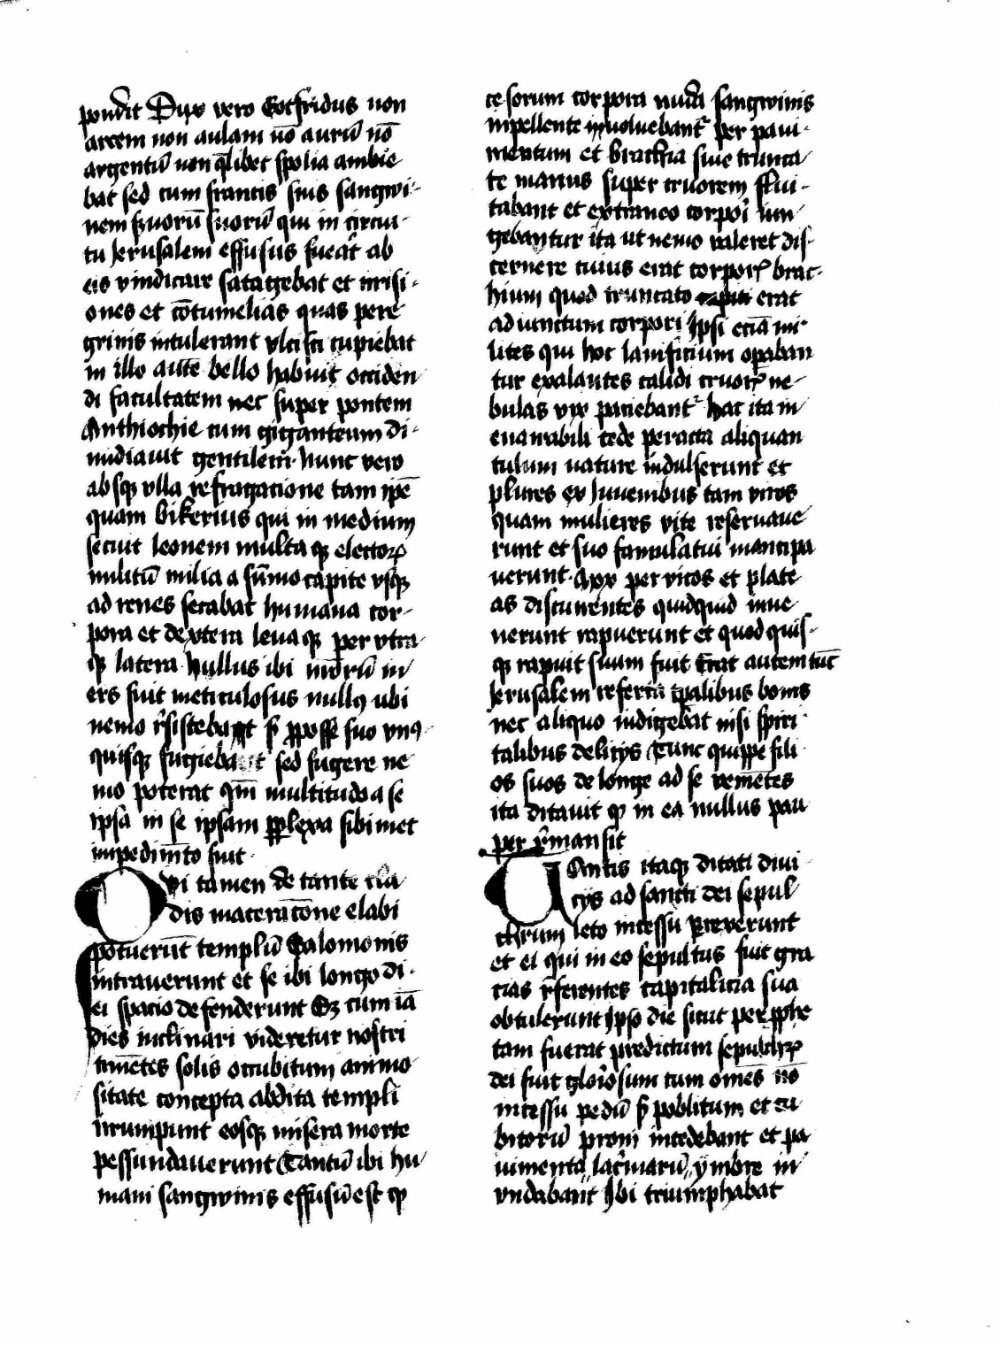 pondit Dux vero Gotfridus non
arcem non aulam nō aurū nō
argentū non qlibet spolia ambie
bat sed cum francis suis sangwi-
nem suorū suorū qui in circui-
tu Jerusalem effusus fuerat ab
eis vindicare satagebat et irrisi-
ones et cōtumelias quas pere
grinis intulerant vlcisci cupiebat
in illo autē bello habuit occiden
di facultatem nec super pontem
Anthiochie cum giganteum di-
midiauit gentilem· hunc vero
absq vlla refragacione tam ipē
quam bikerius qui in medium
secuit leonem multa q electorꝝ
militū milia a sūmo capite vsq
ad renes secabat humana cor-
pora et dextera leua q per vtra
q latera Nullus ibi
ers fuit meticulosus nullus ubi
nemo rsistebat sꝫ ꝓ posse suo vnus
quisq fugiebat sed fugere ne
mo poterat qm̄ multitudo a se
ipsa in se ipsam ꝑplexa sibimet
impedimto fuit·
Qvi tamen de tante cla
dis maceratōne elabi
potuerūt templū Salomonis
intrauerunt et se ibi longo di-
ei spacio defenderunt Sꝫ cum iā
dies inclinari videretur nostri
timētes solis occubitum animo
sitate concepta abdita templi
irrumpunt eosq misera morte
pessundauerunt Tantū ibi hu
mani sangwinis effusū est q
ce sorum corpora vnda sangwinis
inpellente inuoluebantr per paui-
mentum et brachia siue trunca
te manus super cruorem flui-
tabant et extraneo corpori iun-
gebantur ita ut nemo valeret dis-
cernere cuius erat corporis brac-
hium quod truncato erat
adiunctum corpori Ipsi eciā mi-
lites qui hoc lanificium opaban
tur exalantes calidi cruoris ne-
bulas vix paciebantr hac ita in
enarrabili cede peracta aliquan
tulum nature indulserunt et
plures ex Juuenibus tam viros
quam mulieres vite reseruaue
runt et suo famulatui mancipa
uerunt· Mox per vicos et plate
as discurrentes quidquid inue-
nerunt rapuerunt et quod quis-
q rapuit suum fuit Erat autem tūc
Jerusalem referta tꝑalibus bonis
nec aliquo indigebat nisi spiri-
talibus delicijs Tunc quippe fili
os suos de longe ad se veniētes
ita ditauit q in ea nullus pau
per rmansit
Tantis itaq ditati diui
cijs ad sancti dei sepul
chrum leto incessu prexerunt
et ei qui in eo sepultus fuit gra
cias rferentes capitalicia sua
obtulerunt Ipso die sicut per ꝓphe
tam fuerat predictum sepulchrꝝ
dei fuit gloriosum cum omēs nō
incessu pedū sꝫ poblitum et cu
bitorū proni incedebant et pa
uimenta lacrimarū ymbre in
vndabant Ibi triumphabat